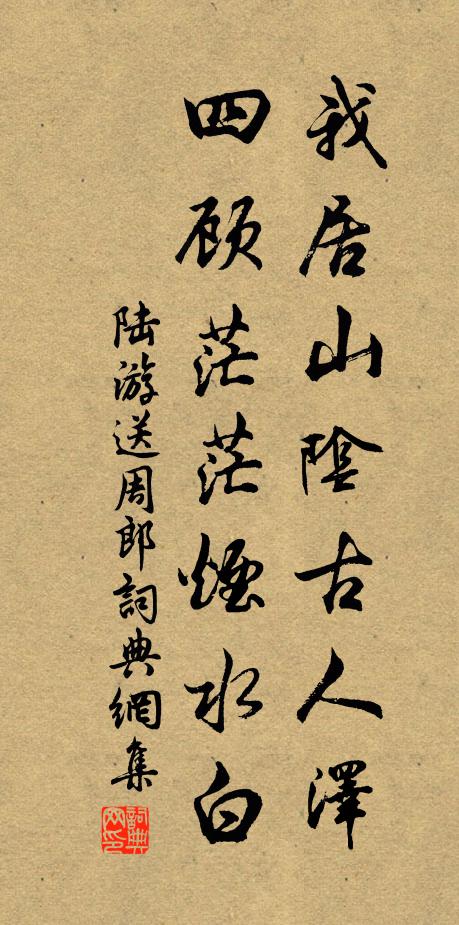 我居山陰古人澤
四顾茫茫煙水白
陆游送周郎詞典網集
詞典網印